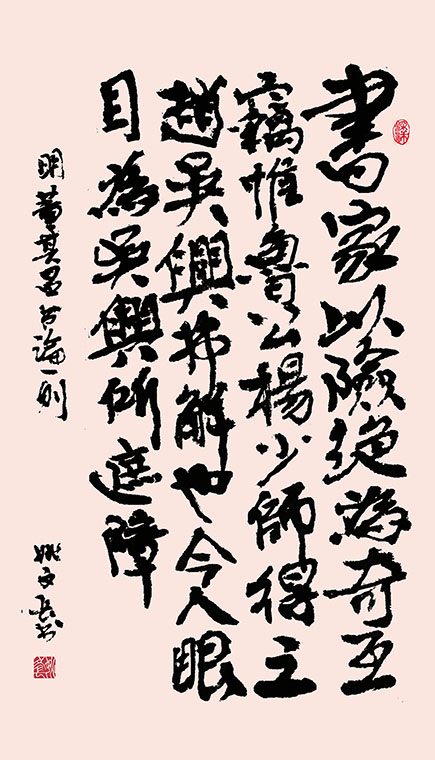 書家以險絕為奇
竊惟魯公楊少師得之
趙吳興弗解也今人眼
目為吳興所遮障
明董其昌書論一則
姚文書